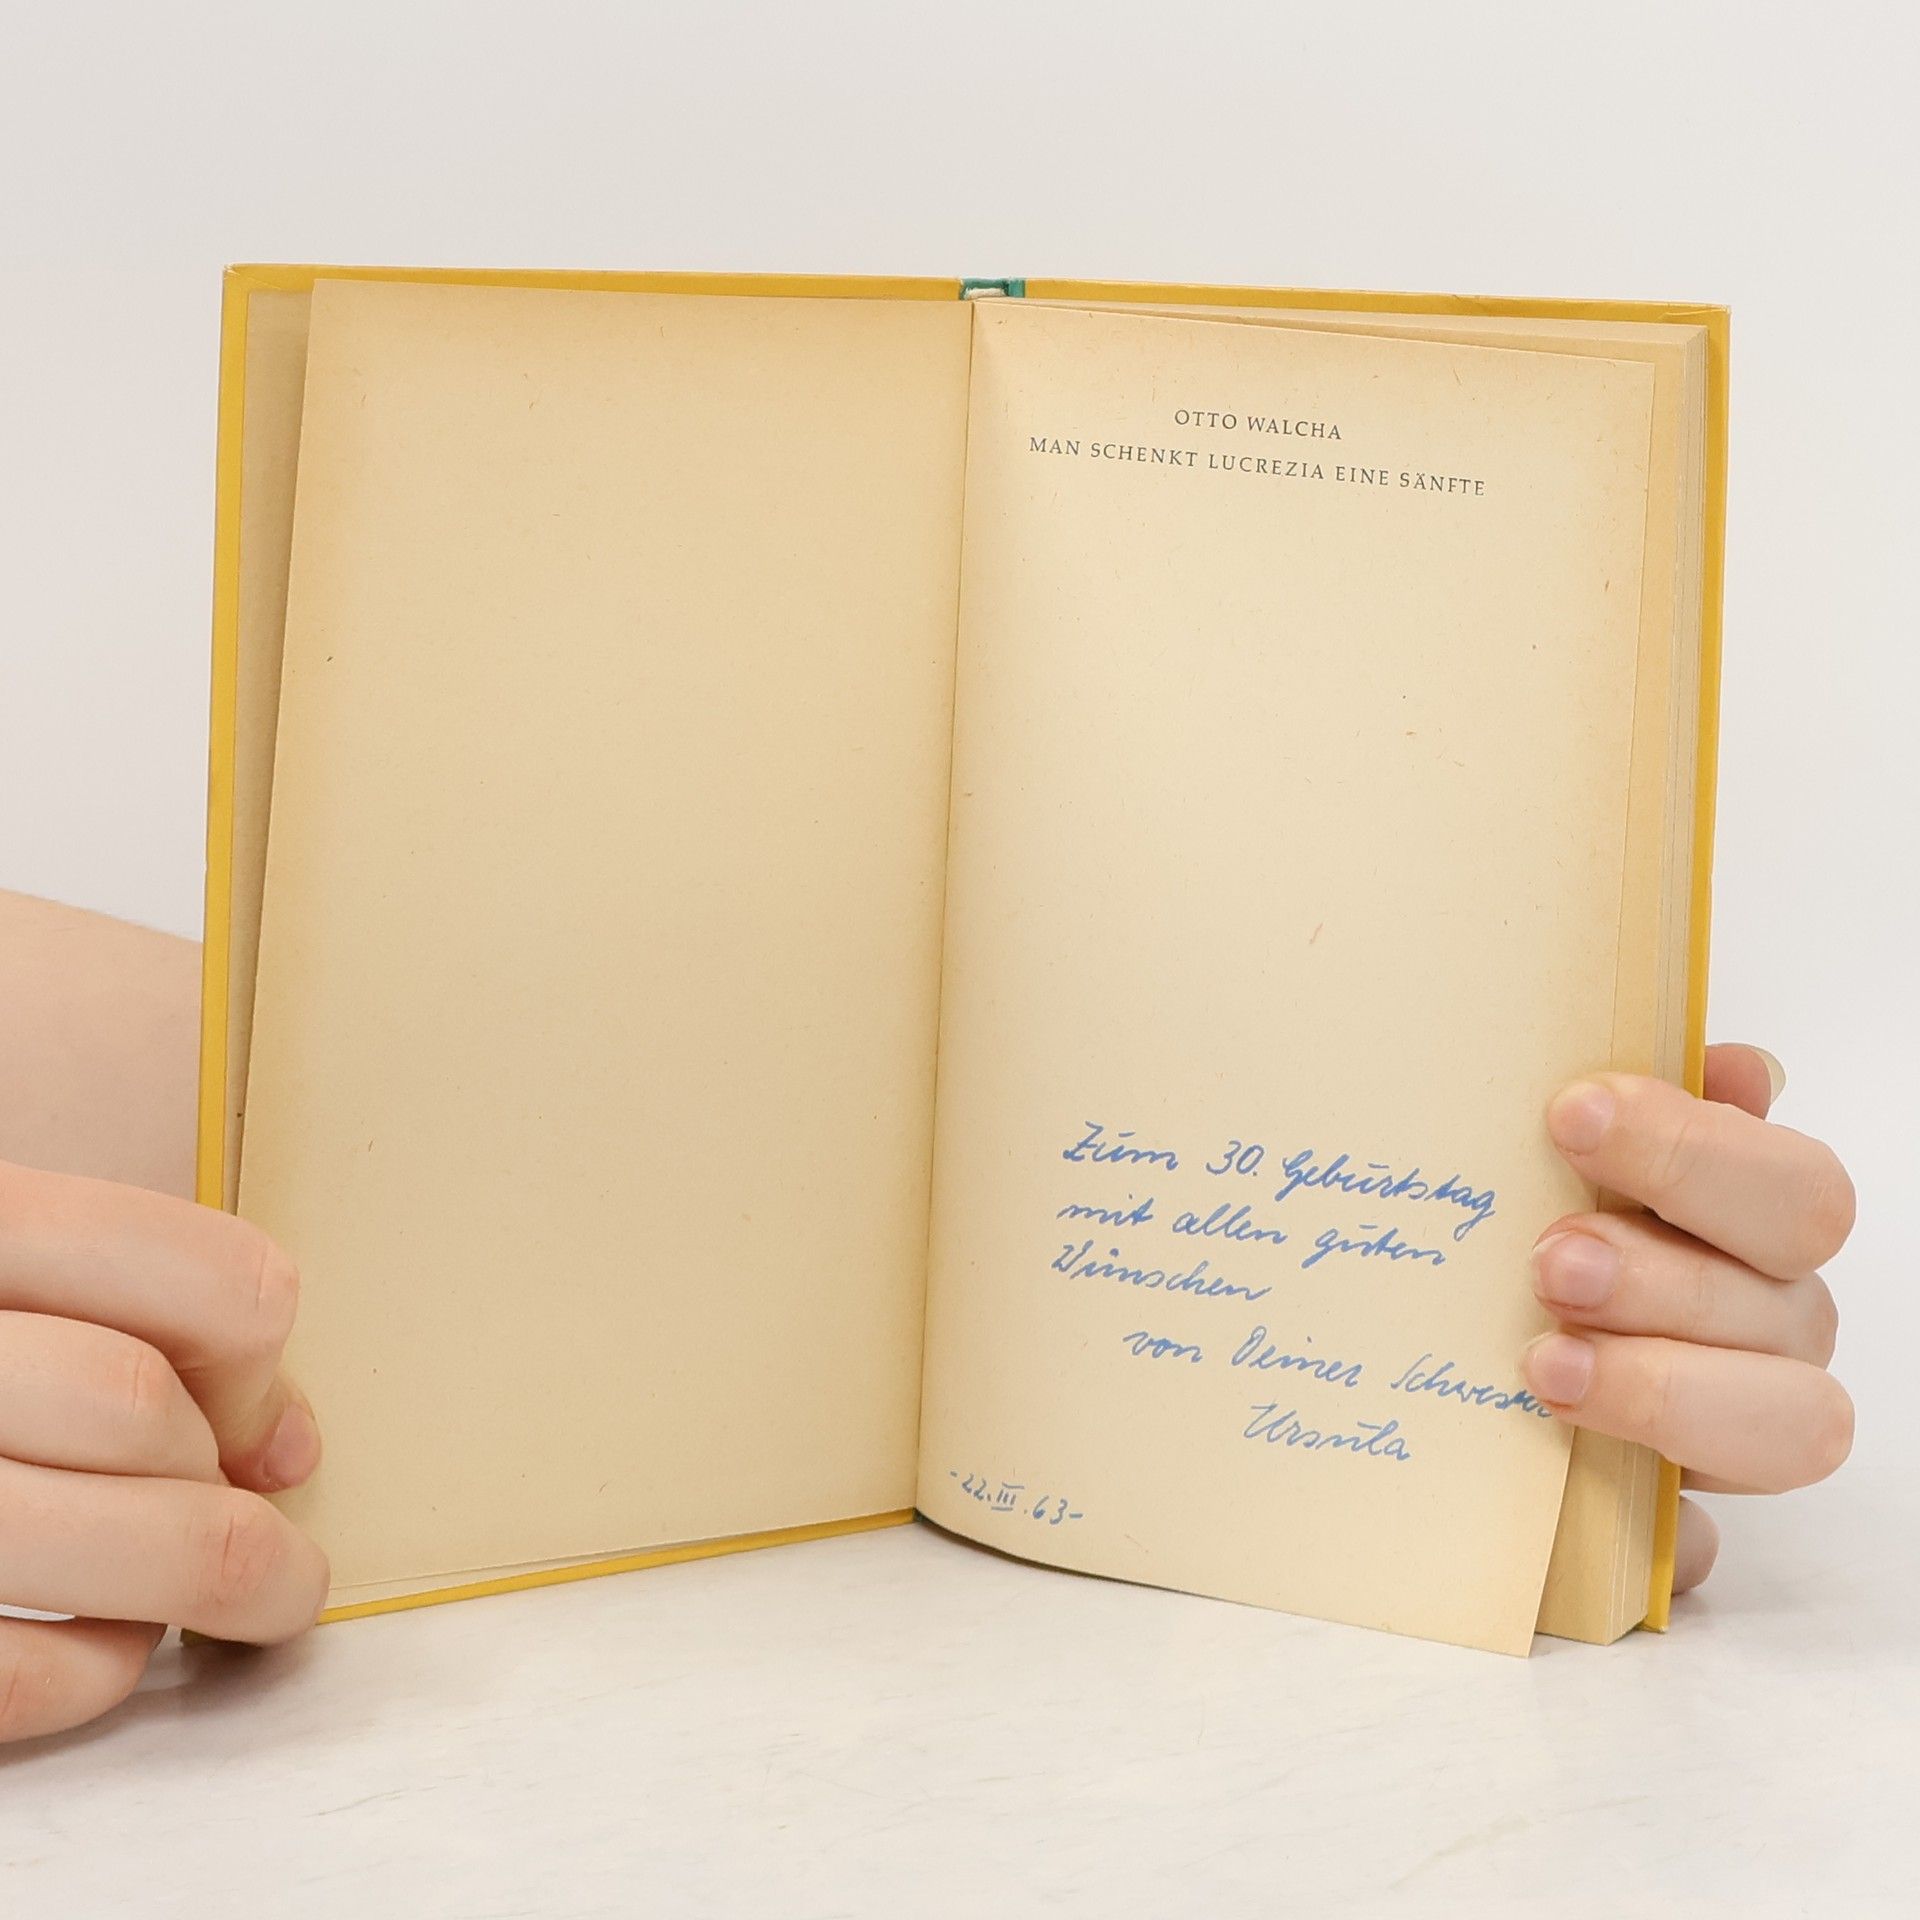 OTTO WALCHA
MAN SCHENKT LUCREZIA EINE SÄNFTE
Zum 30. Geburtstag
mit allen guten
Wünschen
von Deiner Schwester
Ursula
-22.III.63-